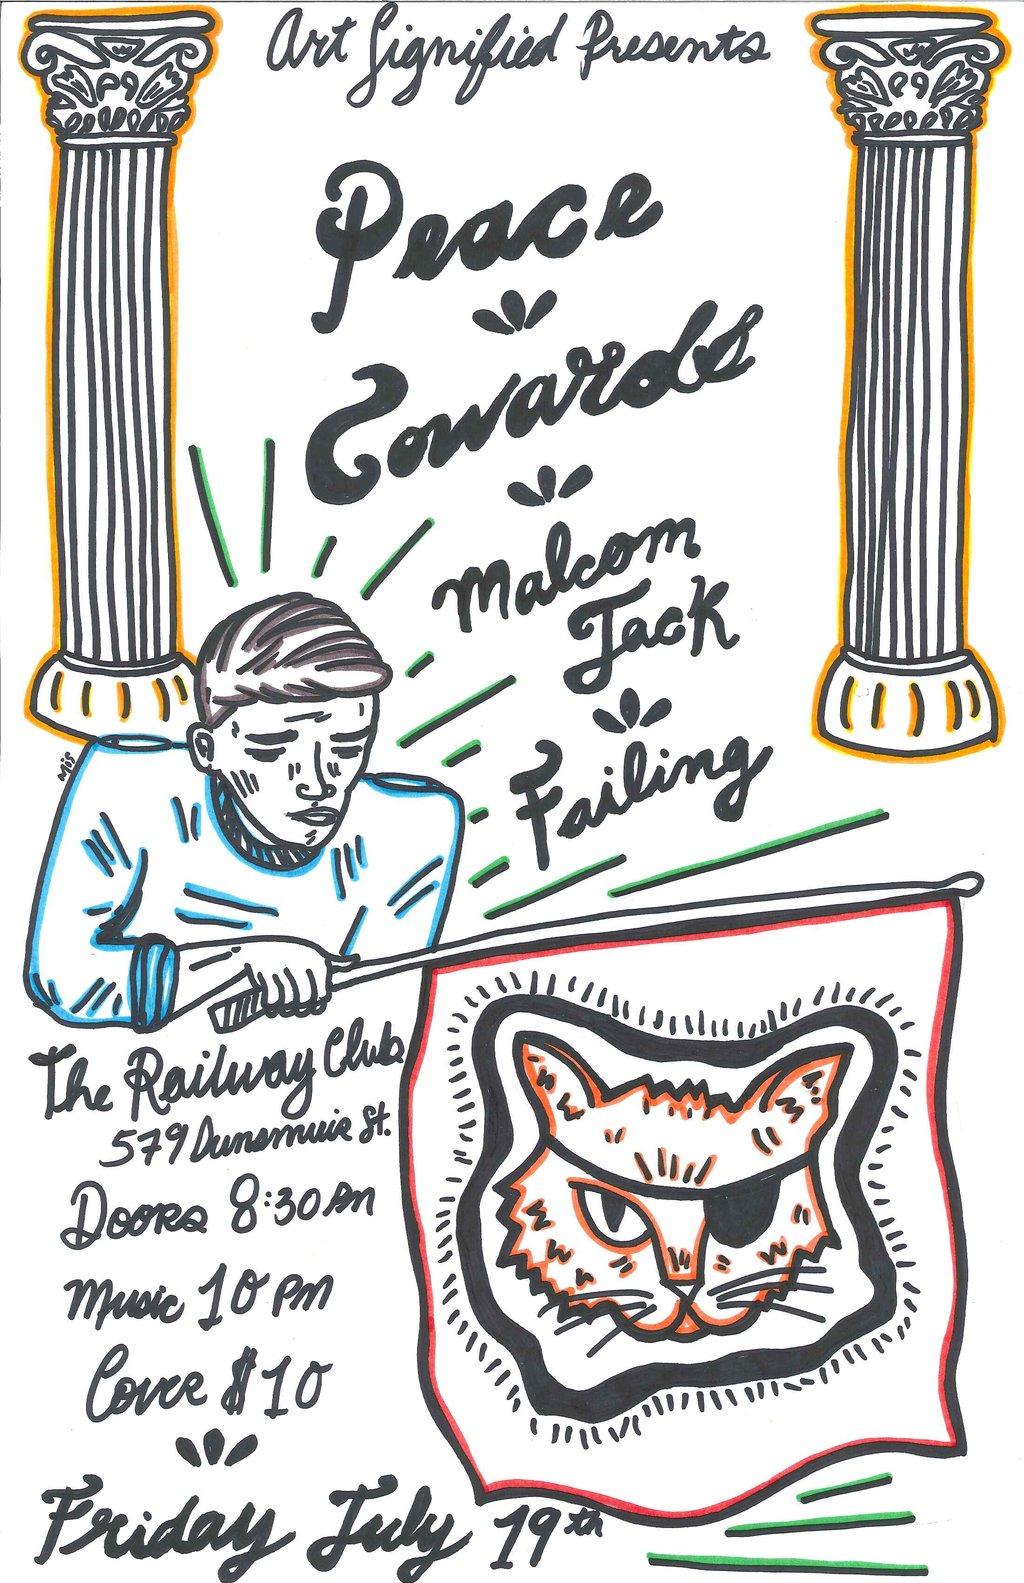 Art Signified Presents
Peace
Cowards
Malcom
Jack
Failing
Mis
The Railway Club
579 Dunsmuir St.
Doors 8:30 PM
Music 10 PM
Cover $10
Friday July 19th